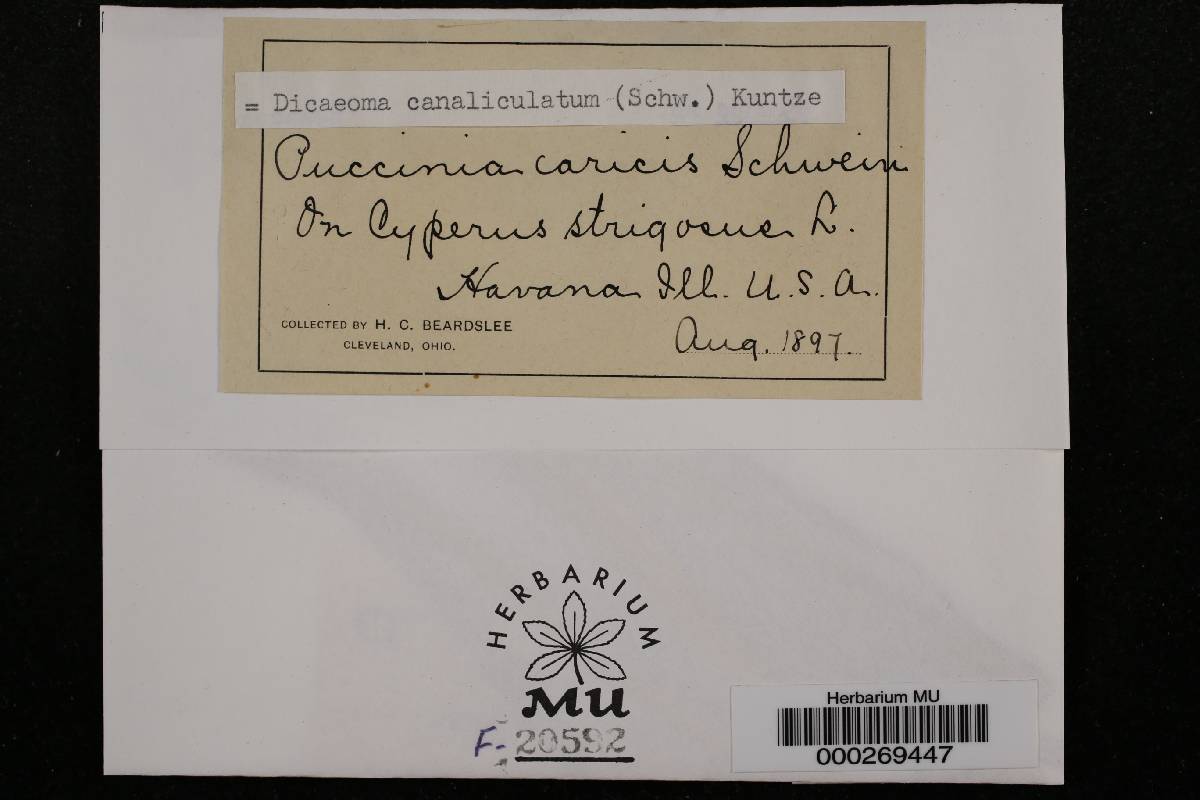 = Dicaeoma canaliculatum (Schw.) Kuntze
Puccinia caricis Schwein
On Cyperus strigosus L.
Havana Ill. U.S.A.
COLLECTED BY H. C. BEARDSLEE
CLEVELAND, OHIO.
Aug. 1897.
HERBARIUM
MU
F-20592
Herbarium MU
000269447